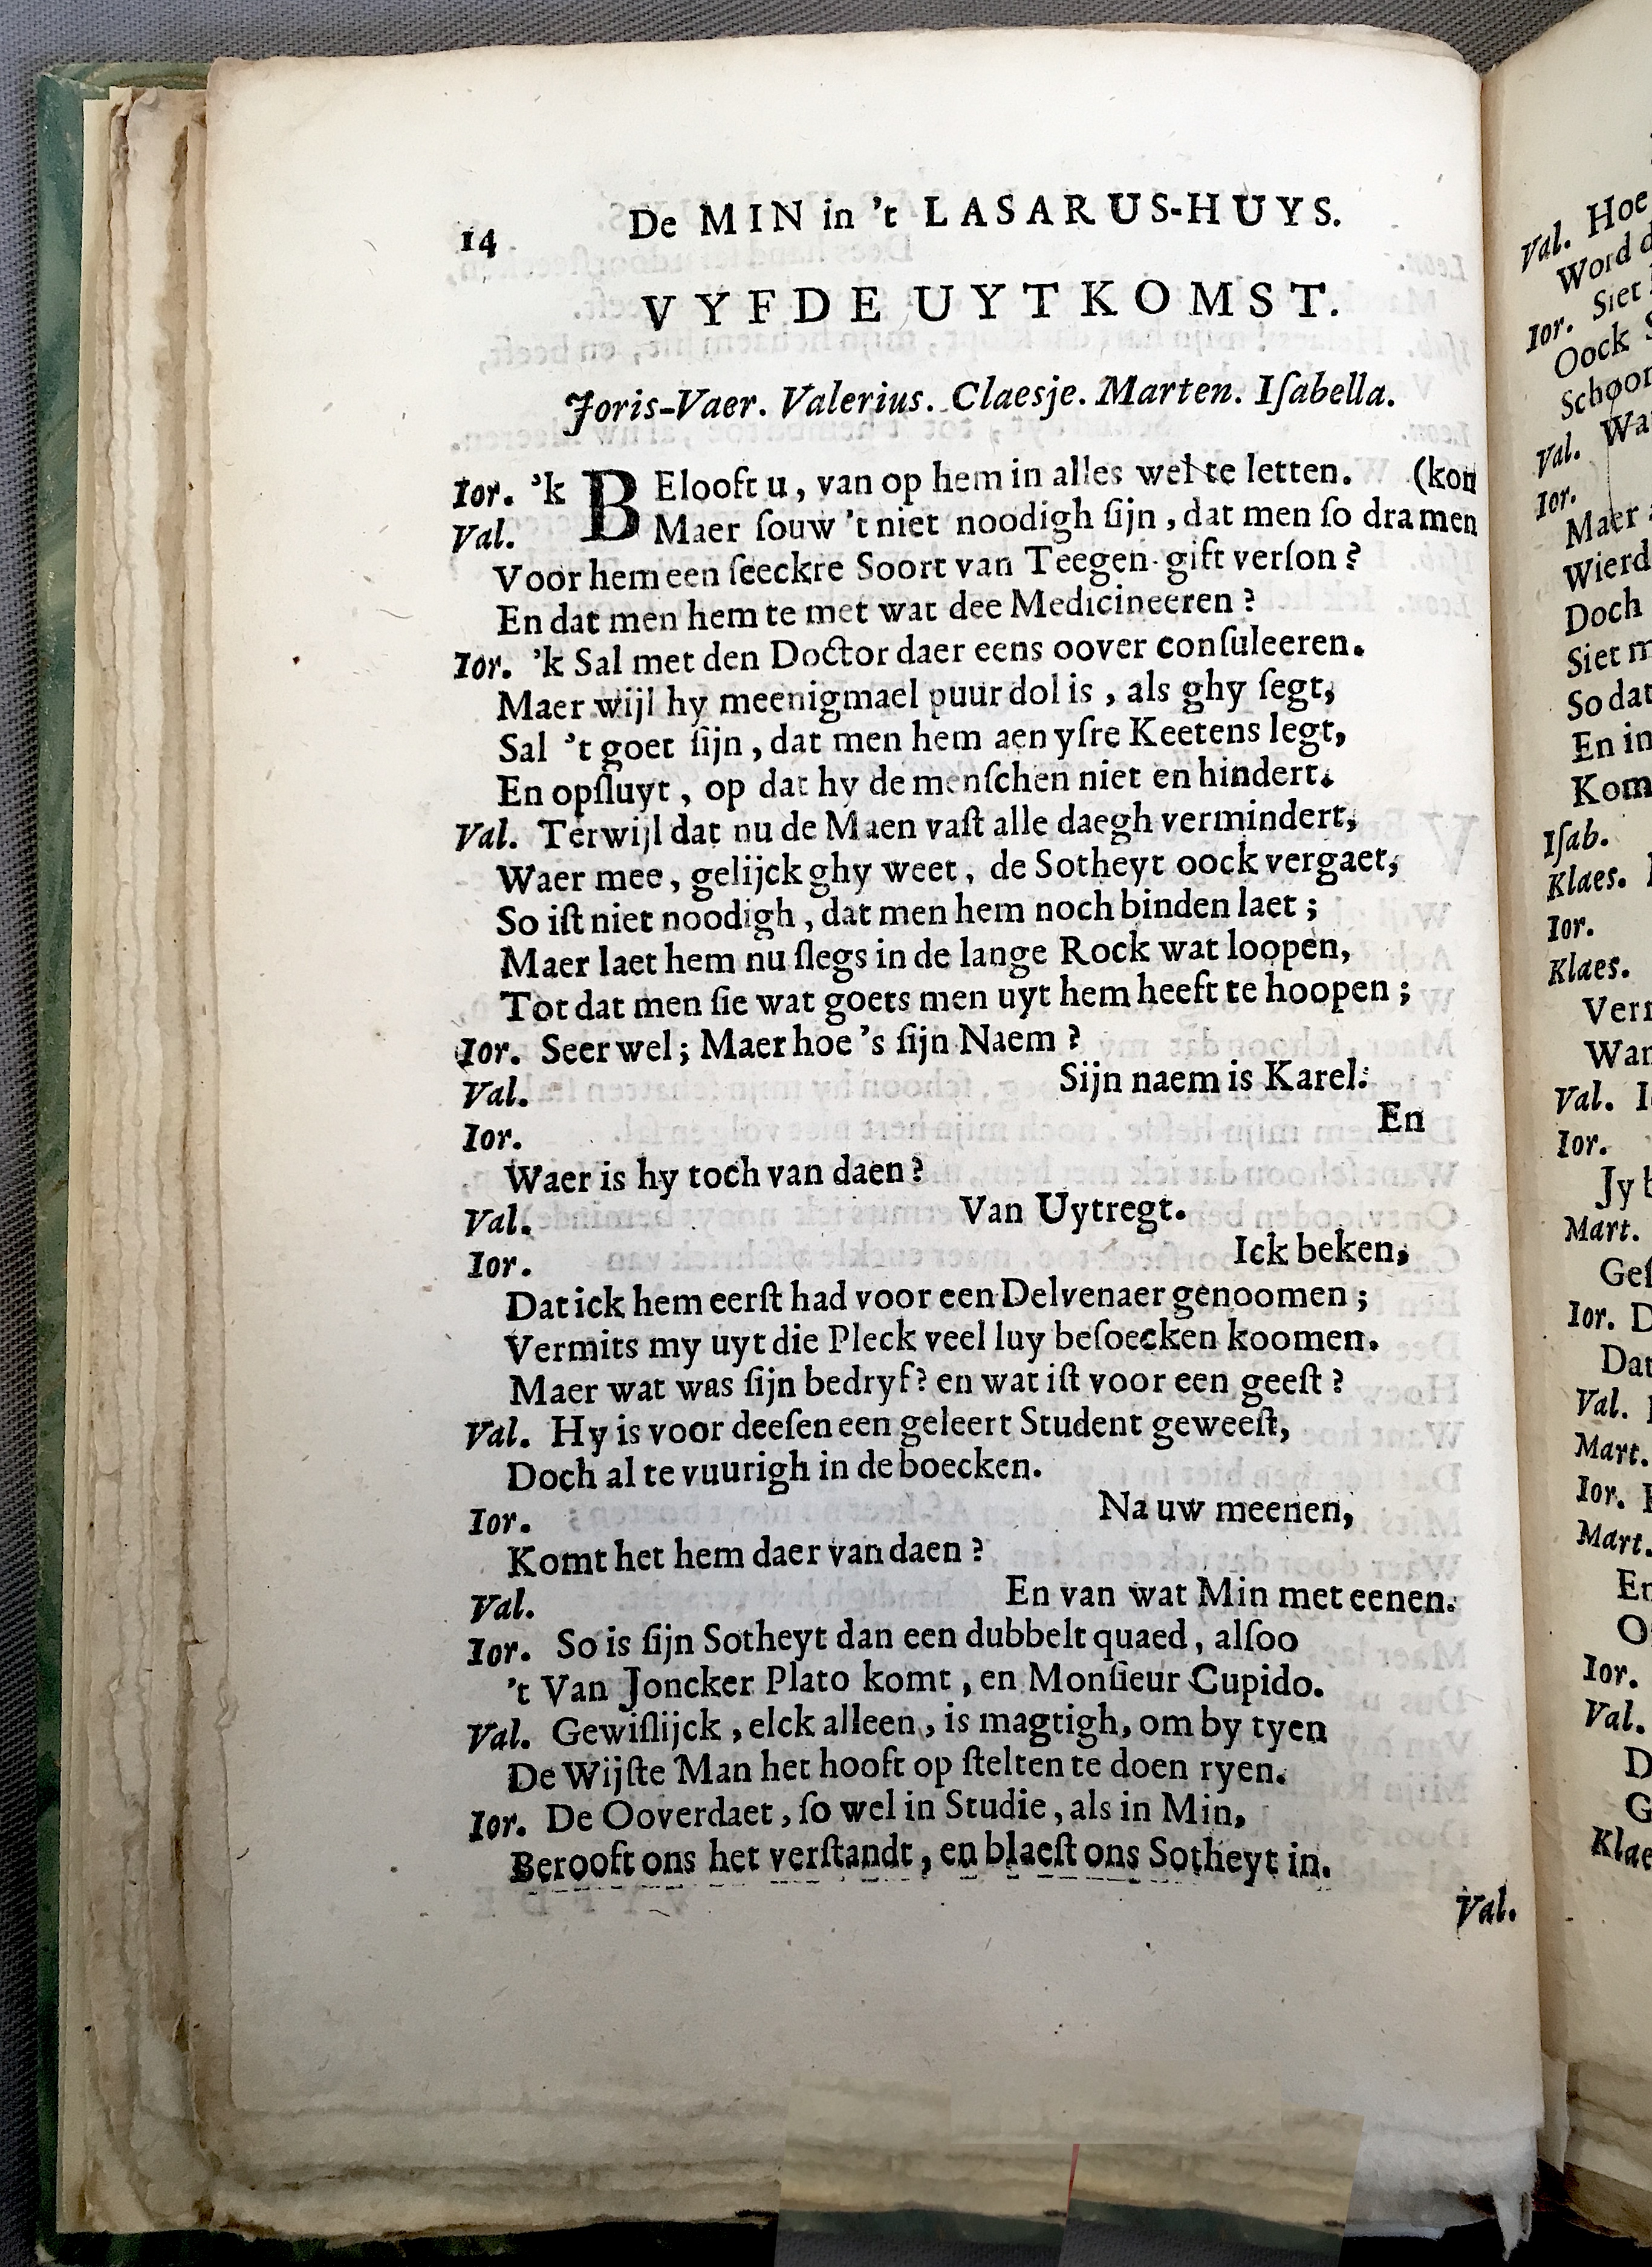 14 De MIN in 't LASARUS-HUYS.
VYFDE UYTKOMST.
Joris-Vaer. Valerius. Claesje. Marten. Iſabella.
Ior. 'k BElooft u, van op hem in alles wel te letten. (kon
Val. Maer ſouw 't niet noodigh ſijn, dat men ſo dra men
Voor hem een ſeeckre Soort van Teegen-gift verſon?
En dat men hem te met wat dee Medicineeren?
Ior. 'k Sal met den Doctor daer eens oover conſuleeren.
Maer wijl hy meenigmael puur dol is, als ghy ſegt,
Sal 't goet ſijn, dat men hem aen yſre Keetens legt,
En opſluyt, op dat hy de menſchen niet en hindert.
Val. Terwijl dat nu de Maen vaſt alle daegh vermindert,
Waer mee, gelijck ghy weet, de Sotheyt oock vergaet,
So iſt niet noodigh, dat men hem noch binden laet;
Maer laet hem nu ſlegs in de lange Rock wat loopen,
Tot dat men ſie wat goets men uyt hem heeft te hoopen;
Ior. Seer wel; Maer hoe 's ſijn Naem?
Val. Sijn naem is Karel.
Ior. En
Waer is hy toch van daen?
Val. Van Uytregt.
Ior. Ick beken,
Dat ick hem eerſt had voor een Delvenaer genoomen;
Vermits my uyt die Pleck veel luy beſoecken koomen.
Maer wat was ſijn bedryf? en wat iſt voor een geeſt?
Val. Hy is voor deeſen een geleert Student geweeſt,
Doch al te vuurigh in de boecken.
Ior. Na uw meenen,
Komt het hem daer van daen?
Val. En van wat Min met eenen.
Ior. So is ſijn Sotheyt dan een dubbelt quaed, alſoo
't Van Joncker Plato komt, en Monſieur Cupido.
Val. Gewiſlijck, elck alleen, is magtigh, om by tyen
De Wijſte Man het hooft op ſtelten te doen ryen.
Ior. De Ooverdaet, ſo wel in Studie, als in Min,
Berooft ons het verſtandt, en blaeſt ons Sotheyt in.
Val.
Val. Hoe
Word
Ior. Siet
Oock
Schoon
Val.
Ior.
Maer
Wierd
Doch
Siet
So dat
En in
Kom
Iſab.
Klaes.
Ior.
Klaes.
Val.
Ior.
Jy
Mart.
Ior.
Val.
Mart.
Ior.
Mart.
Ior.
Val.